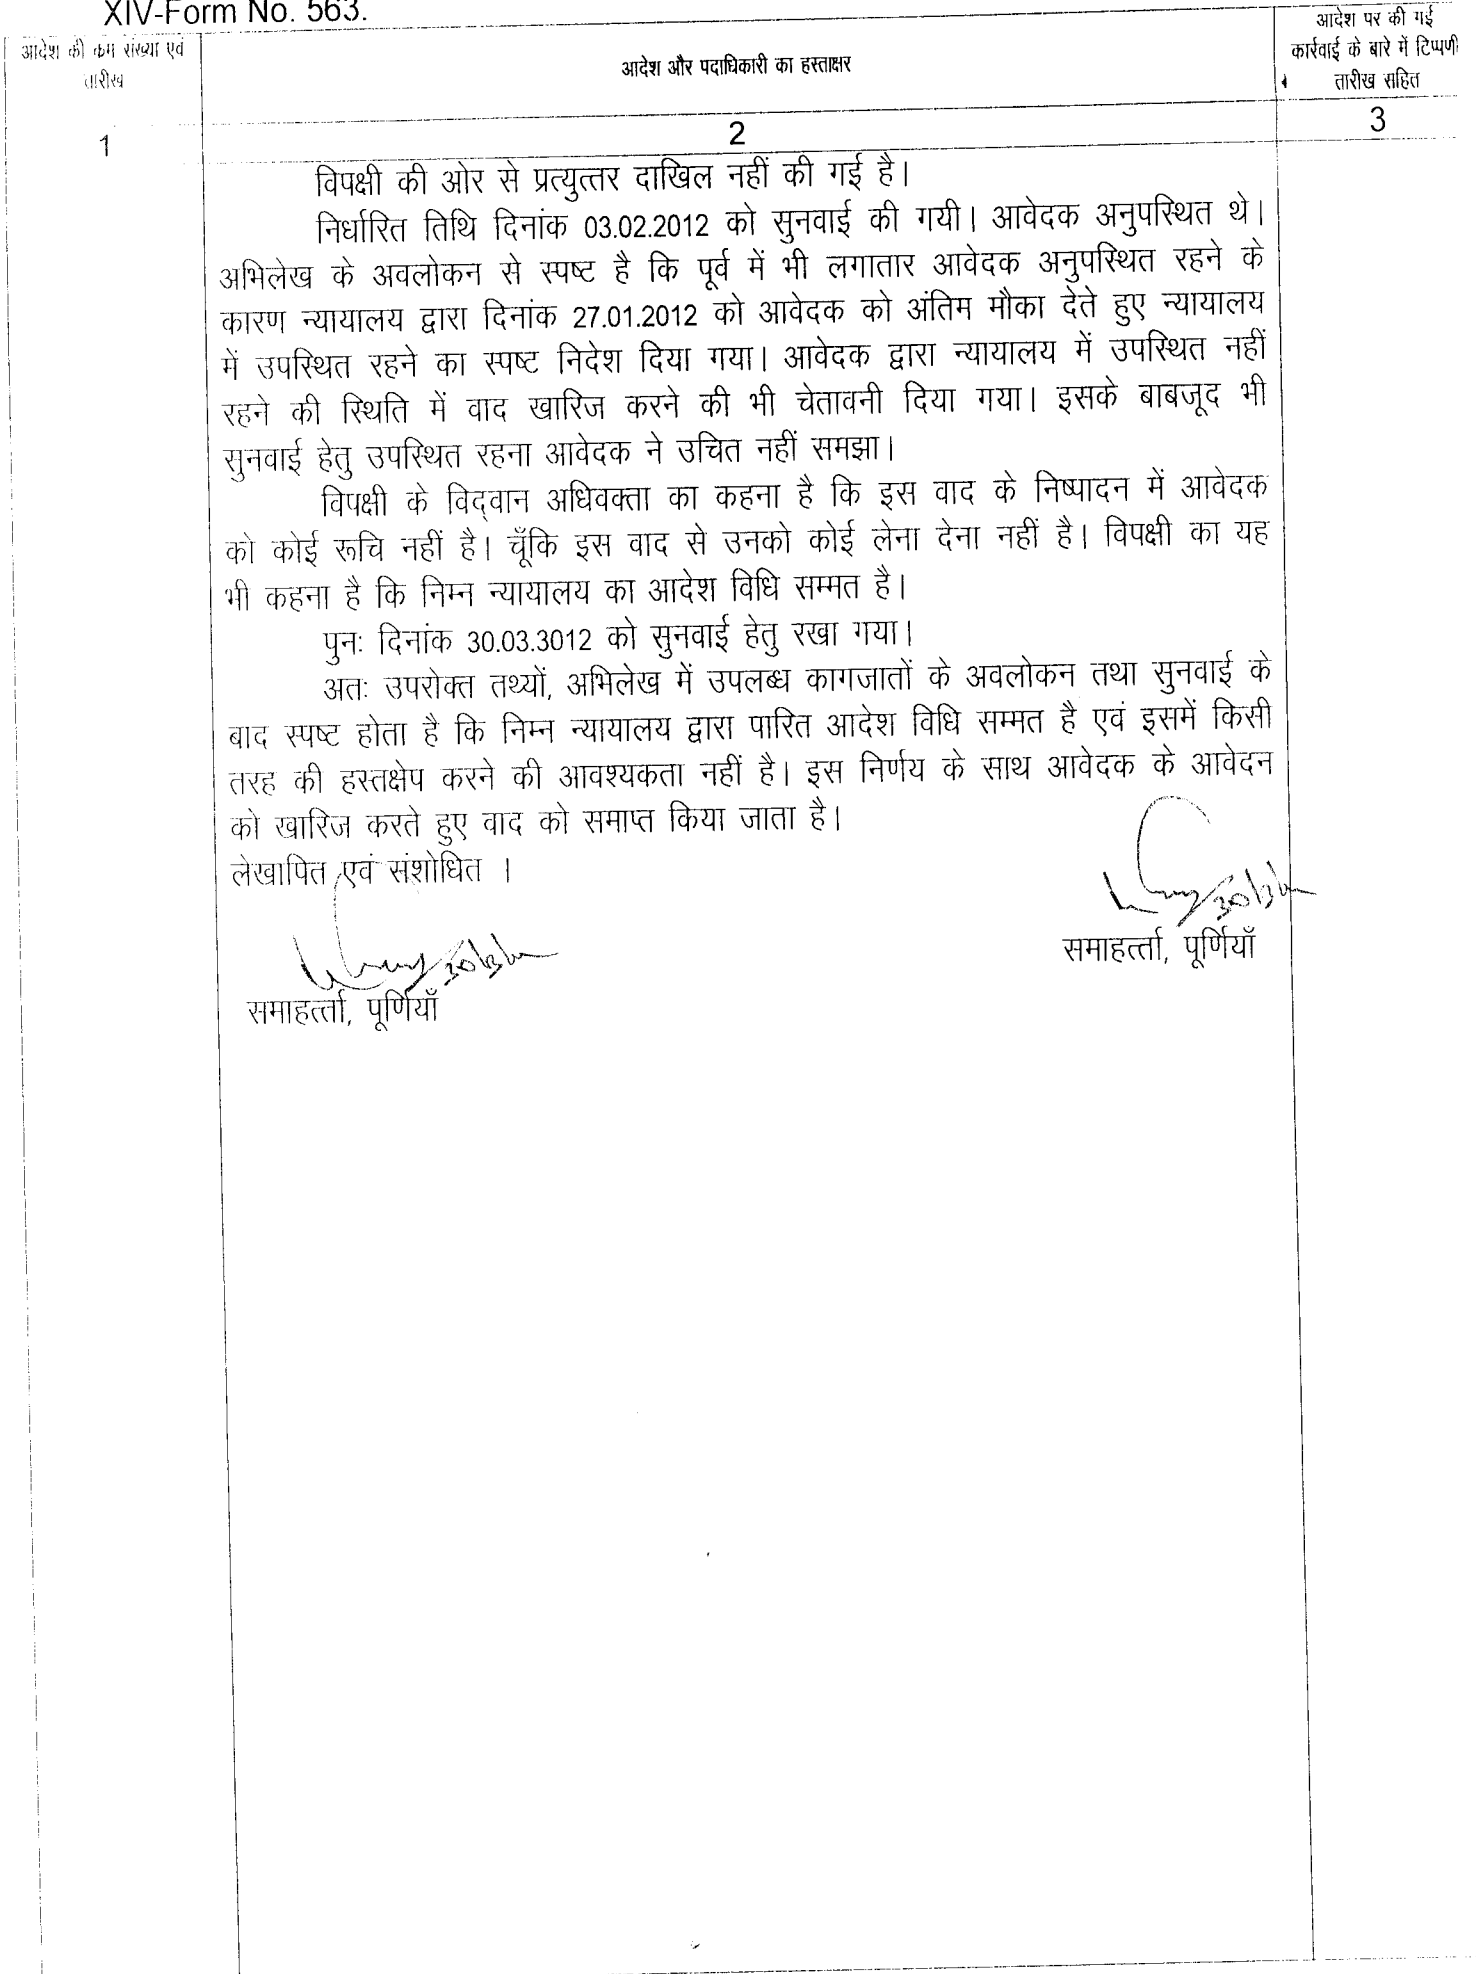 XIV-Form No. 563.
आदेश की क्रम संख्या एवं
तारीख
आदेश और पदाधिकारी का हस्ताक्षर
आदेश पर की गई
कार्रवाई के बारे में टिप्पणी
तारीख सहित
1
2
3
विपक्षी की ओर से प्रत्युत्तर दाखिल नहीं की गई है।
निर्धारित तिथि दिनांक 03.02.2012 को सुनवाई की गयी। आवेदक अनुपस्थित थे।
अभिलेख के अवलोकन से स्पष्ट है कि पूर्व में भी लगातार आवेदक अनुपस्थित रहने के
कारण न्यायालय द्वारा दिनांक 27.01.2012 को आवेदक को अंतिम मौका देते हुए न्यायालय
में उपस्थित रहने का स्पष्ट निदेश दिया गया। आवेदक द्वारा न्यायालय में उपस्थित नहीं
रहने की स्थिति में वाद खारिज करने की भी चेतावनी दिया गया। इसके बाबजूद भी
सुनवाई हेतु उपस्थित रहना आवेदक ने उचित नहीं समझा।
विपक्षी के विद्वान अधिवक्ता का कहना है कि इस वाद के निष्पादन में आवेदक
को कोई रूचि नहीं है। चूँकि इस वाद से उनको कोई लेना देना नहीं है। विपक्षी का यह
भी कहना है कि निम्न न्यायालय का आदेश विधि सम्मत है।
पुनः दिनांक 30.03.3012 को सुनवाई हेतु रखा गया।
अतः उपरोक्त तथ्यों, अभिलेख में उपलब्ध कागजातों के अवलोकन तथा सुनवाई के
बाद स्पष्ट होता है कि निम्न न्यायालय द्वारा पारित आदेश विधि सम्मत है एवं इसमें किसी
तरह की हस्तक्षेप करने की आवश्यकता नहीं है। इस निर्णय के साथ आवेदक के आवेदन
को खारिज करते हुए वाद को समाप्त किया जाता है।
लेखापित एवं संशोधित ।
समाहर्त्ता, पूर्णियाँ
समाहर्त्ता, पूर्णियाँ